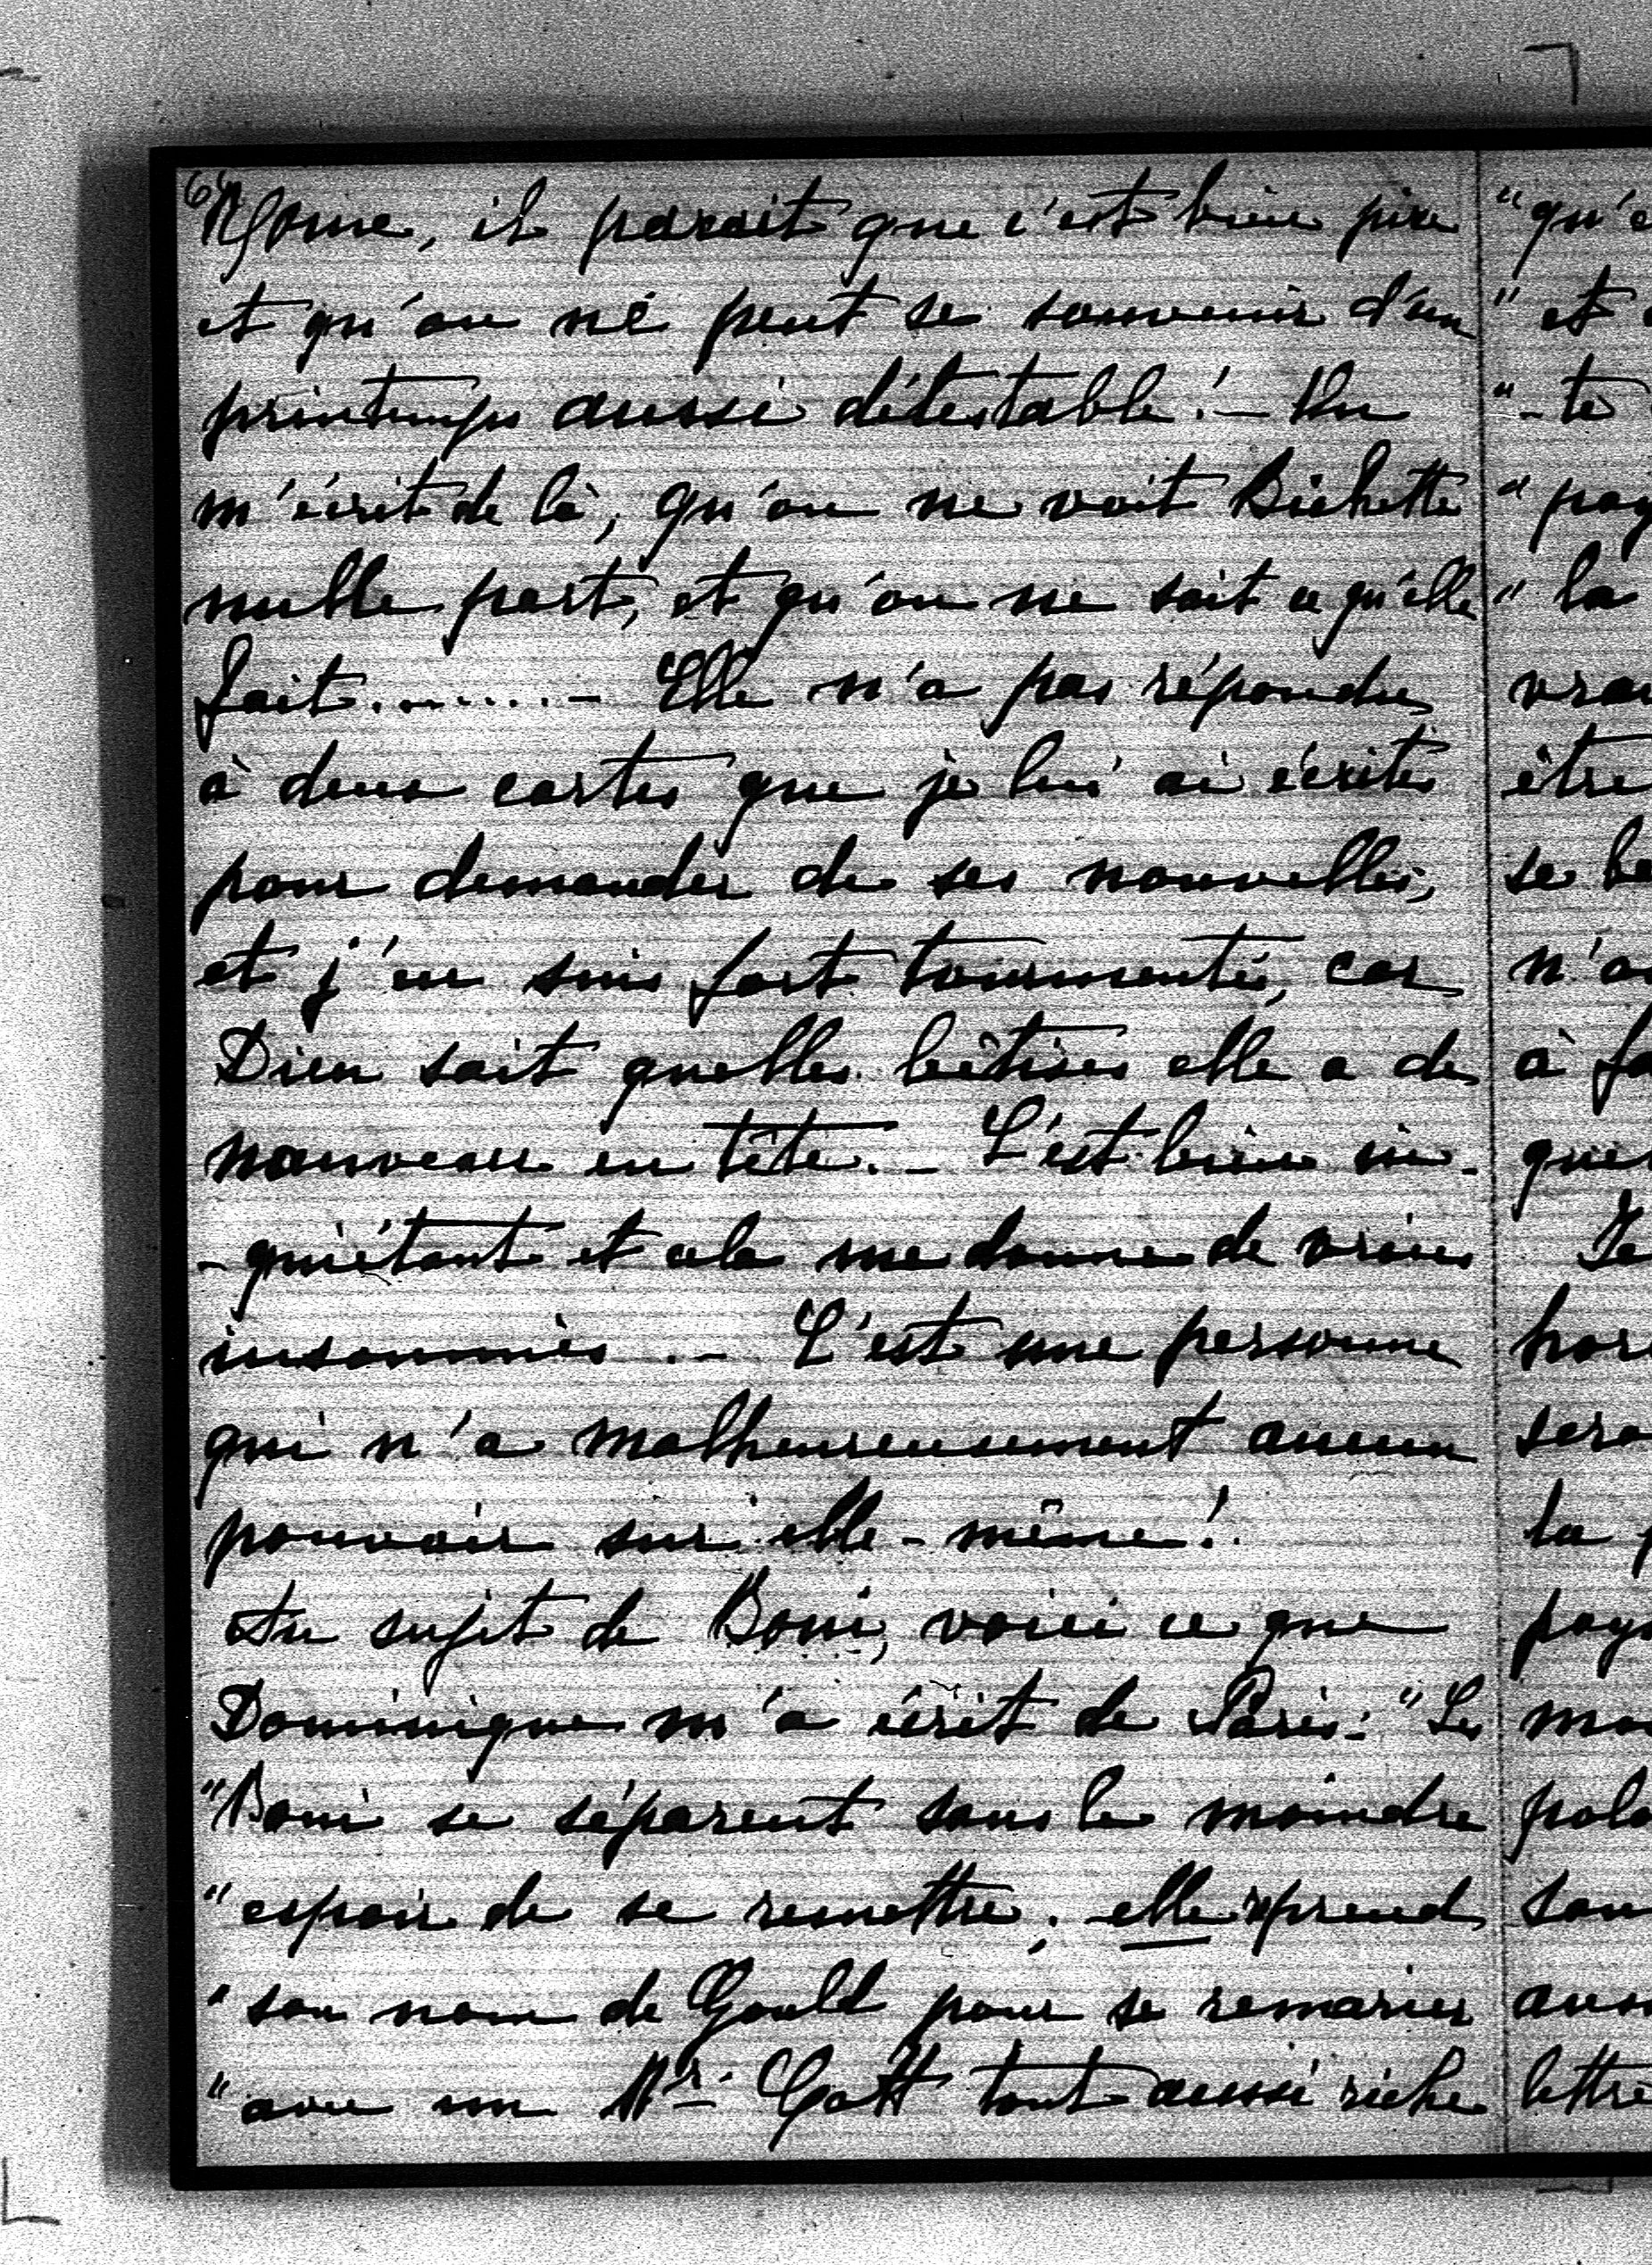 Rome, il parait que c'est bien pire
et qu'on ne peut se souvenir d'un
printemps aussi détestable! – On
m'écrit de là, qu'on ne voit Bichette
nulle part, et qu'on ne sait ce qu'elle
fait........ – Elle n'a pas répondu
à deux cartes que je lui ai écrites
pour demander de ses nouvelles,
et j'en suis fort tourmentée, car
Dieu sait quelles bêtises elle a de
nouveau en tête. – C'est bien in-
-quiétant et cela me donne de vraies
insomnies. – C'est une personne
qui n'a malheureusement aucun
pouvoir sur elle-même!
Au sujet de Boni, voici ce que
Dominique m'a écrit de Paris: "Les
"Boni se séparent sans le moindre
"espoir de se remettre; elle reprend
"son nom de Gould pour se remarier
"avec un Mr. Gott tout aussi riche
"qu'e
" et
"-te
" pay
" la
vrai
être
se
n'a
à
que
Je
hor
sera
la
pay
mo
polo
son
avo
lettre